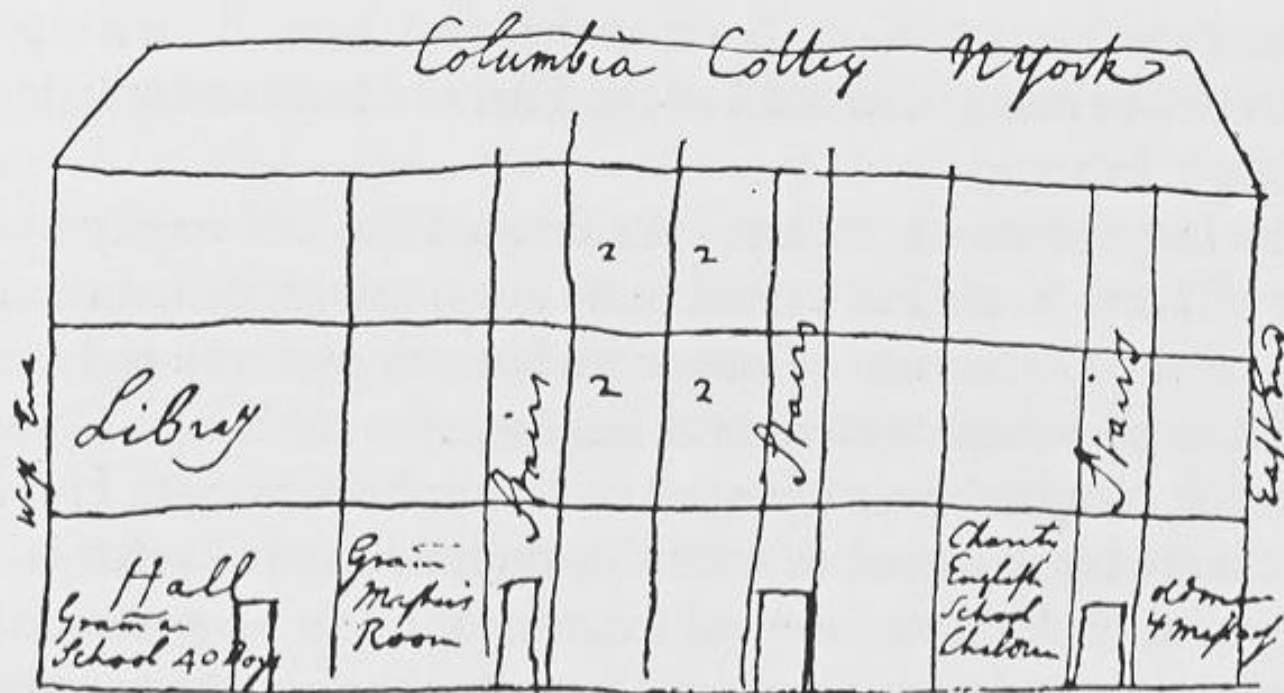 Columbia Colleg NYork
2 2
2 2
West End
Library
Stairs
Stairs
Stairs
East End
Hall
Gramar
School 40 Boys
Gram
Masters
Room
Charity
English
School
Children
old man